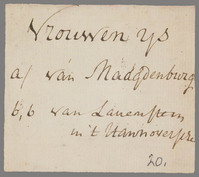 Vrouwen ys
a/ van Maddenburg
b, b van Lauenstein
in 't Hannoversche
20.